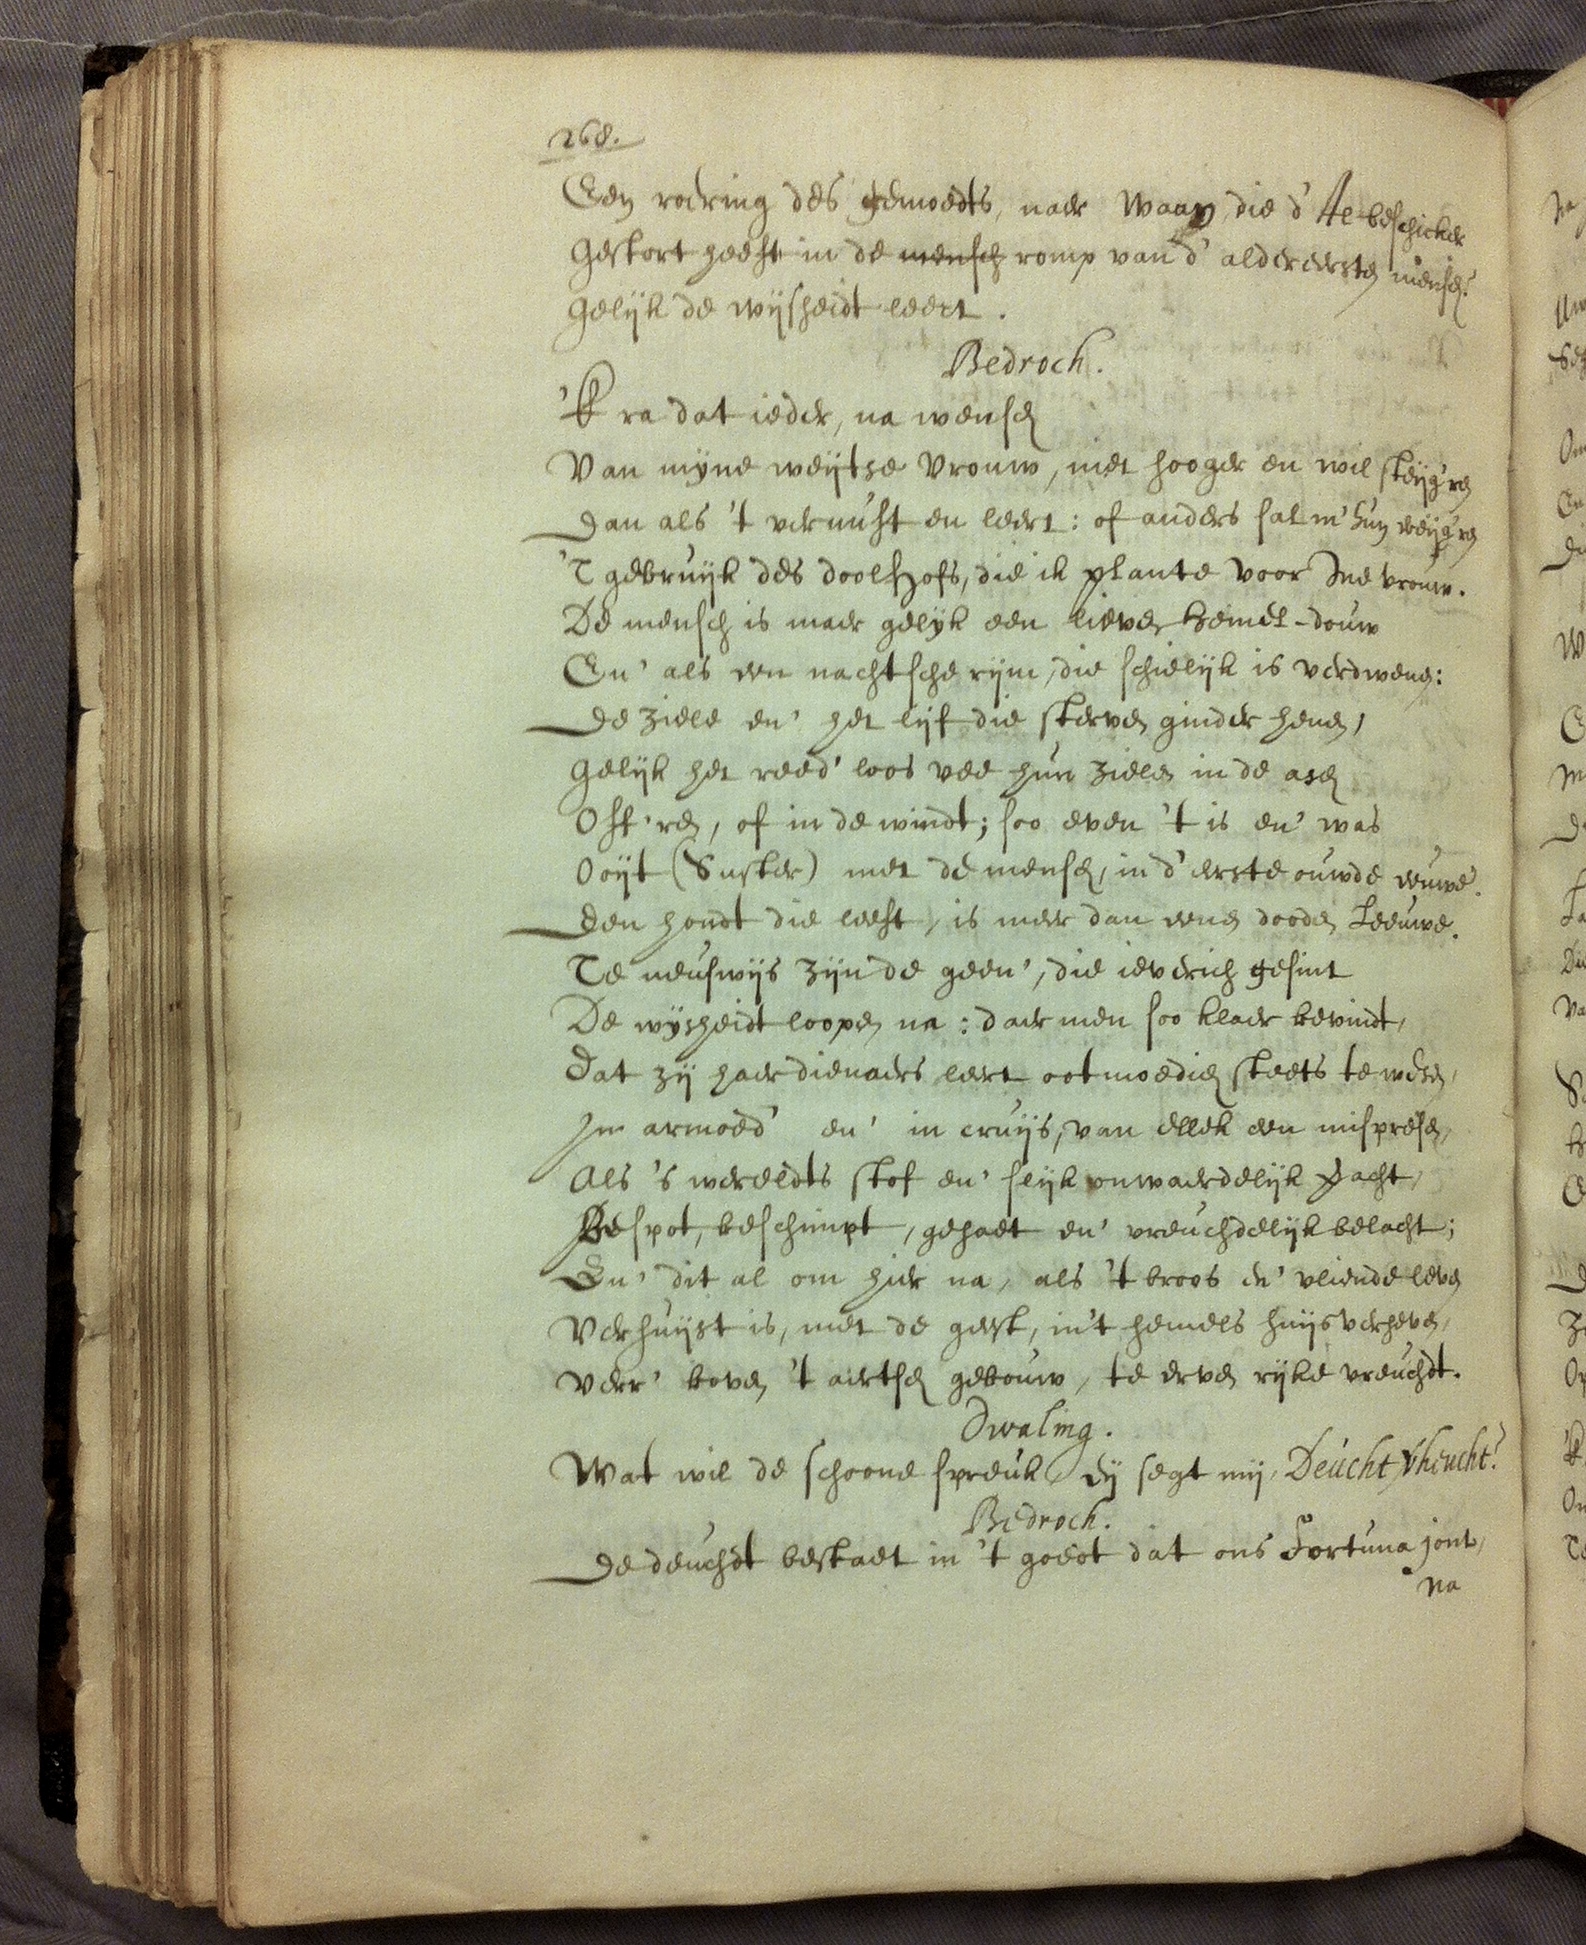 268.
Een roering des gemoedts, naer waan, die d' Al-beschicker
Gestort heeft in de mensch romp van d' aldereersten mensch?
Gelijk de wijsheidt leert.
Bedroch.
'K ra dat ieder, na wensch
Van mijne weijtse Vrouw, niet hooger en wil steijg'ren
Dan als 't vernuft en leert: of anders sal m' hun weijg'ren
'T gebruijk des doolhofs, die ik plante voor Me vrouw.
De mensch is maer gelijk een lieven hemel-douw
En' als een nachtsche rijm, die schielijk is verdwenen:
De ziele en' het lijf die sterven ginder henen,
Gelijk het reed' loos vee hun zielen in de asch
Off'ren, of in de windt; soo even 't is en' was
Ooijt (Suster) met de mensch, in d' eerste ouwde eeuwe.
Den hondt die leeft, is meer dan eenen dooden Leeuwe.
Te neuswijs zijn de geen', die ieverich gesint
De wijsheidt loopen na: daer men soo klaer bevindt,
Dat zij haer dienaers leert ootmoedich steets te wesen,
In armoed' en' in cruijs, van ellek een mispresen,
Als 's wereldts stof en' slijk onwaerdelijk geacht,
Bespot, beschimpt, gehaet en' vreuchdelijk belacht;
En' dit al om hier na, als 't broos en' vliende leven
Verhuijst is, met de geest, in't hemels huijs verheven,
Verr' boven 't aertsch gebouw, te erven rijke vreuchdt.
Dwaling.
Wat wil de schoone spreuk, Eij segt mij, Deucht Vheucht?
Bedroch.
De deuchdt bestaet in 't goedt dat ons Fortuna jont,
Na